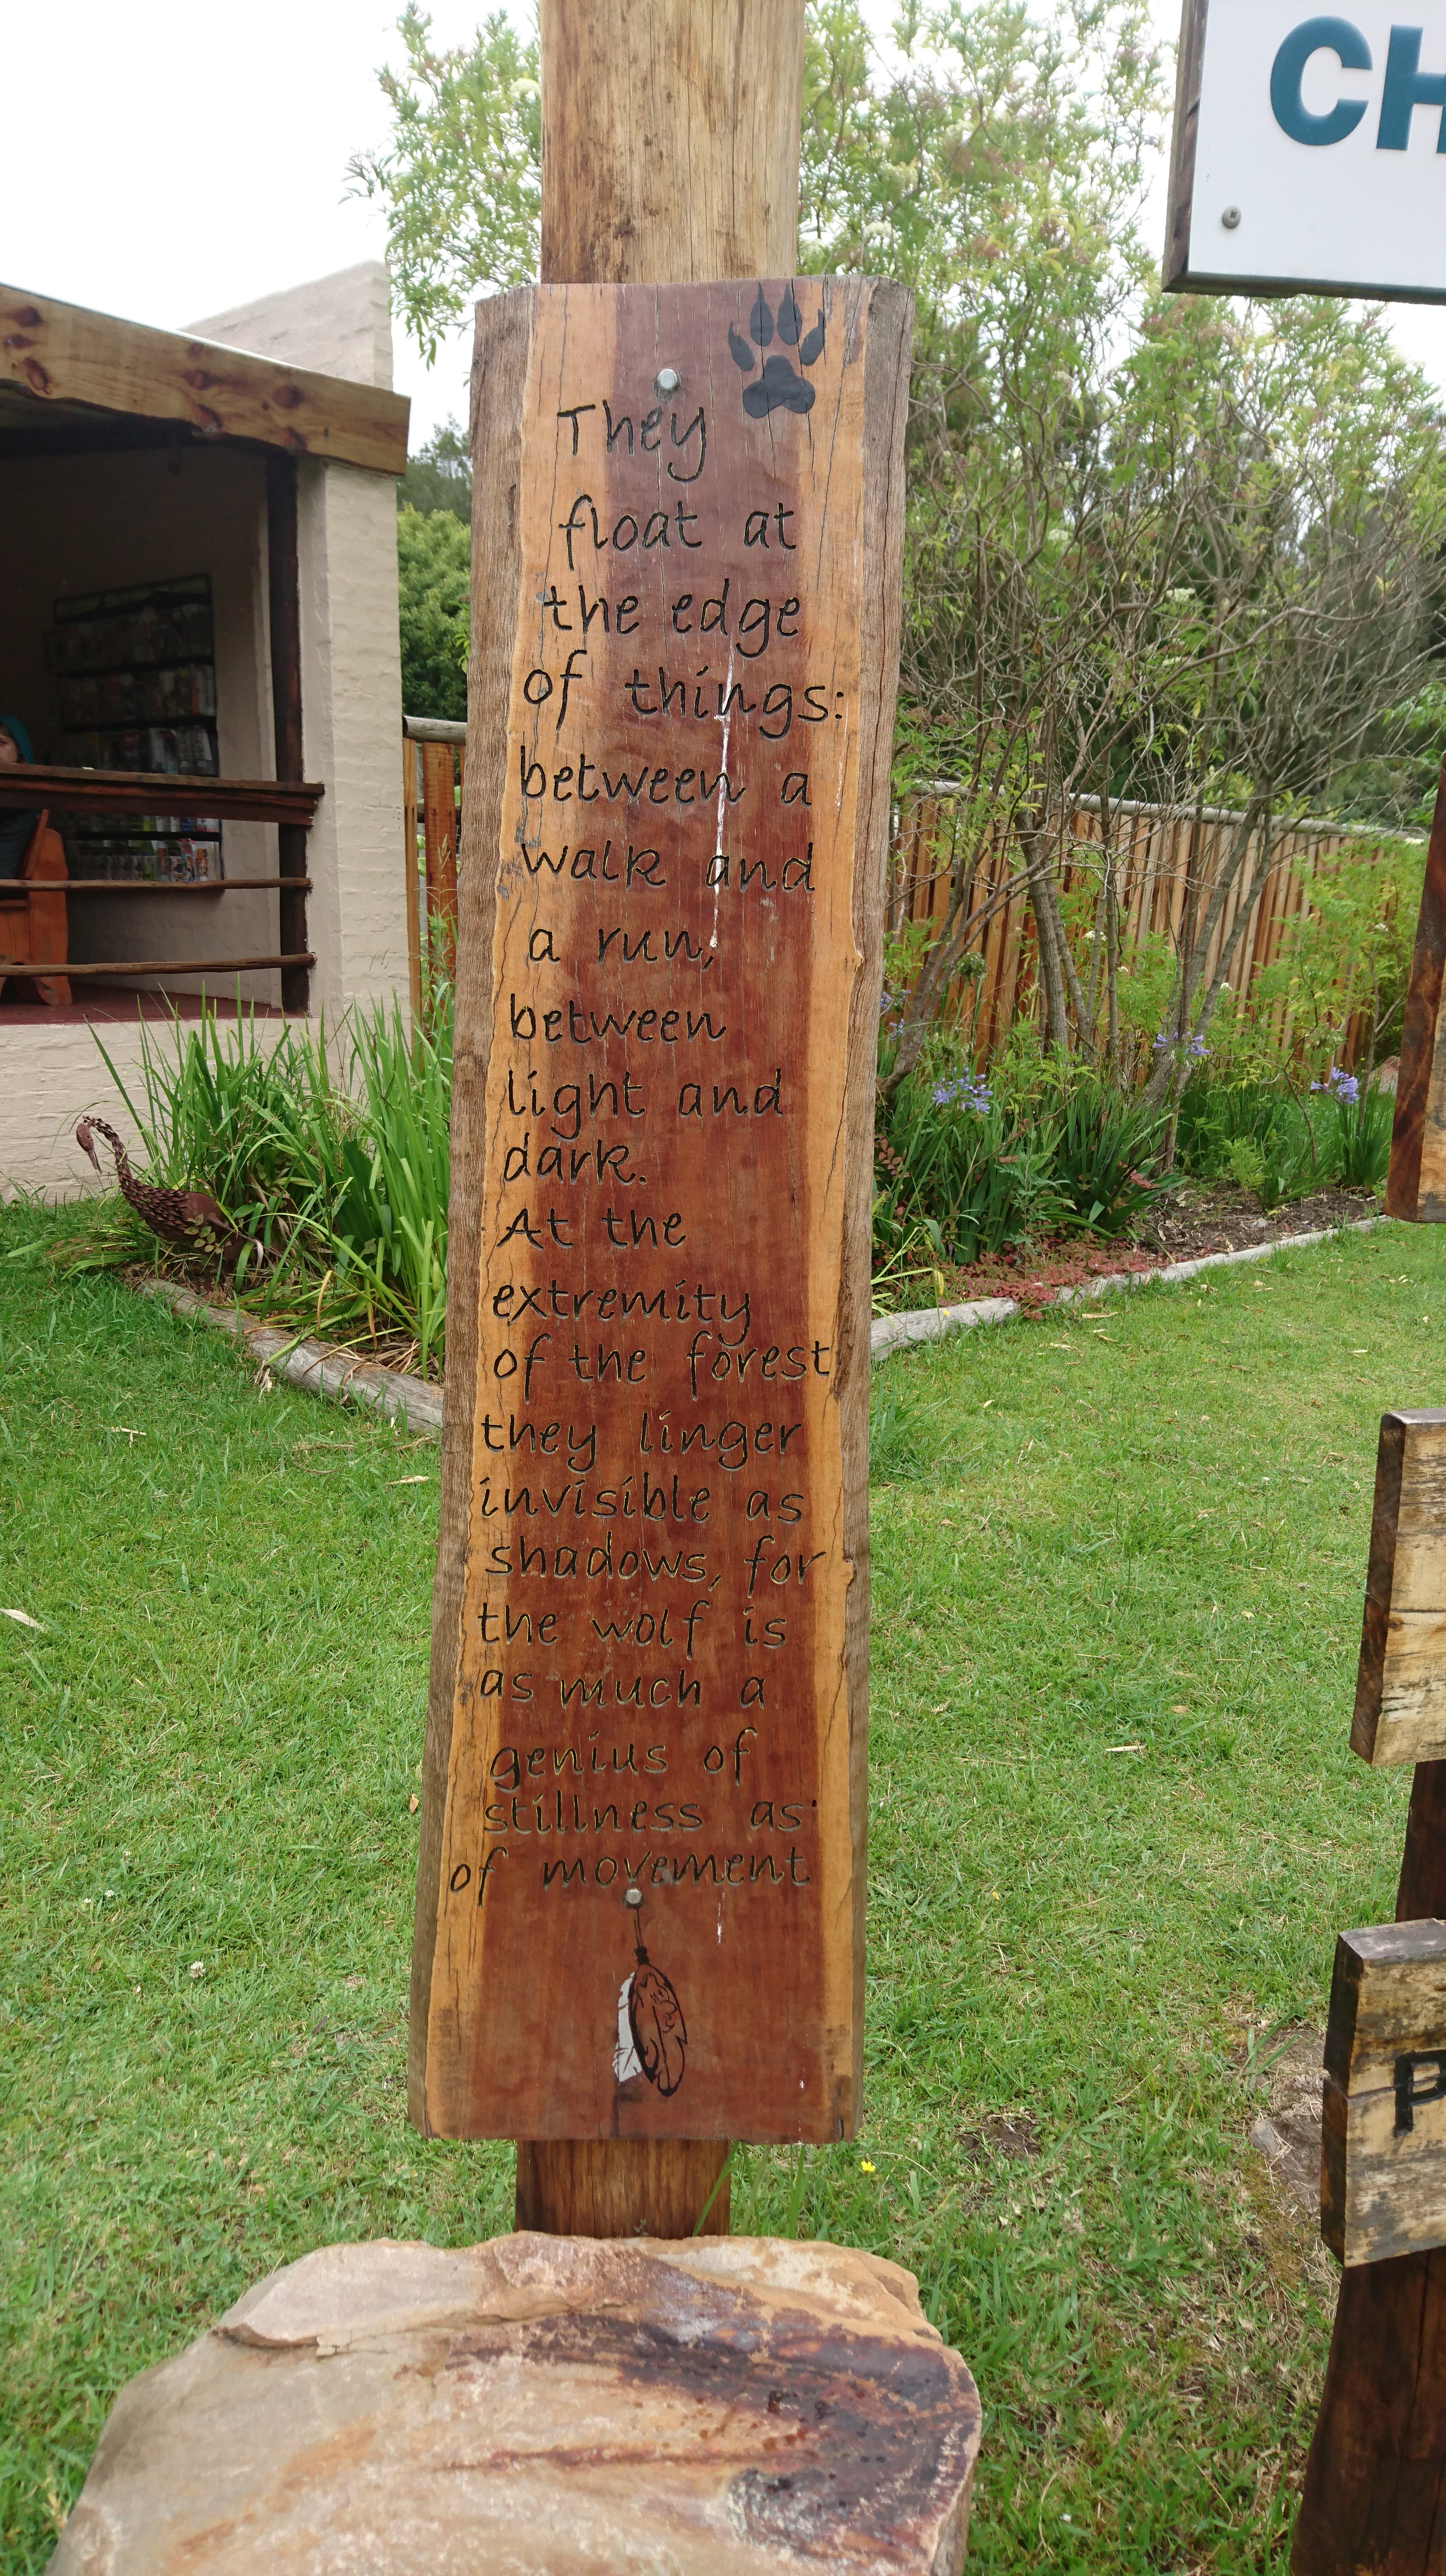 CH
They
float at
the edge
of things:
between a
walk and
a run,
between
light and
dark.
At the
extremity
of the forest
they linger
invisible as
shadows, for
the wolf is
as much a
genius of
stillness as
of movement
P